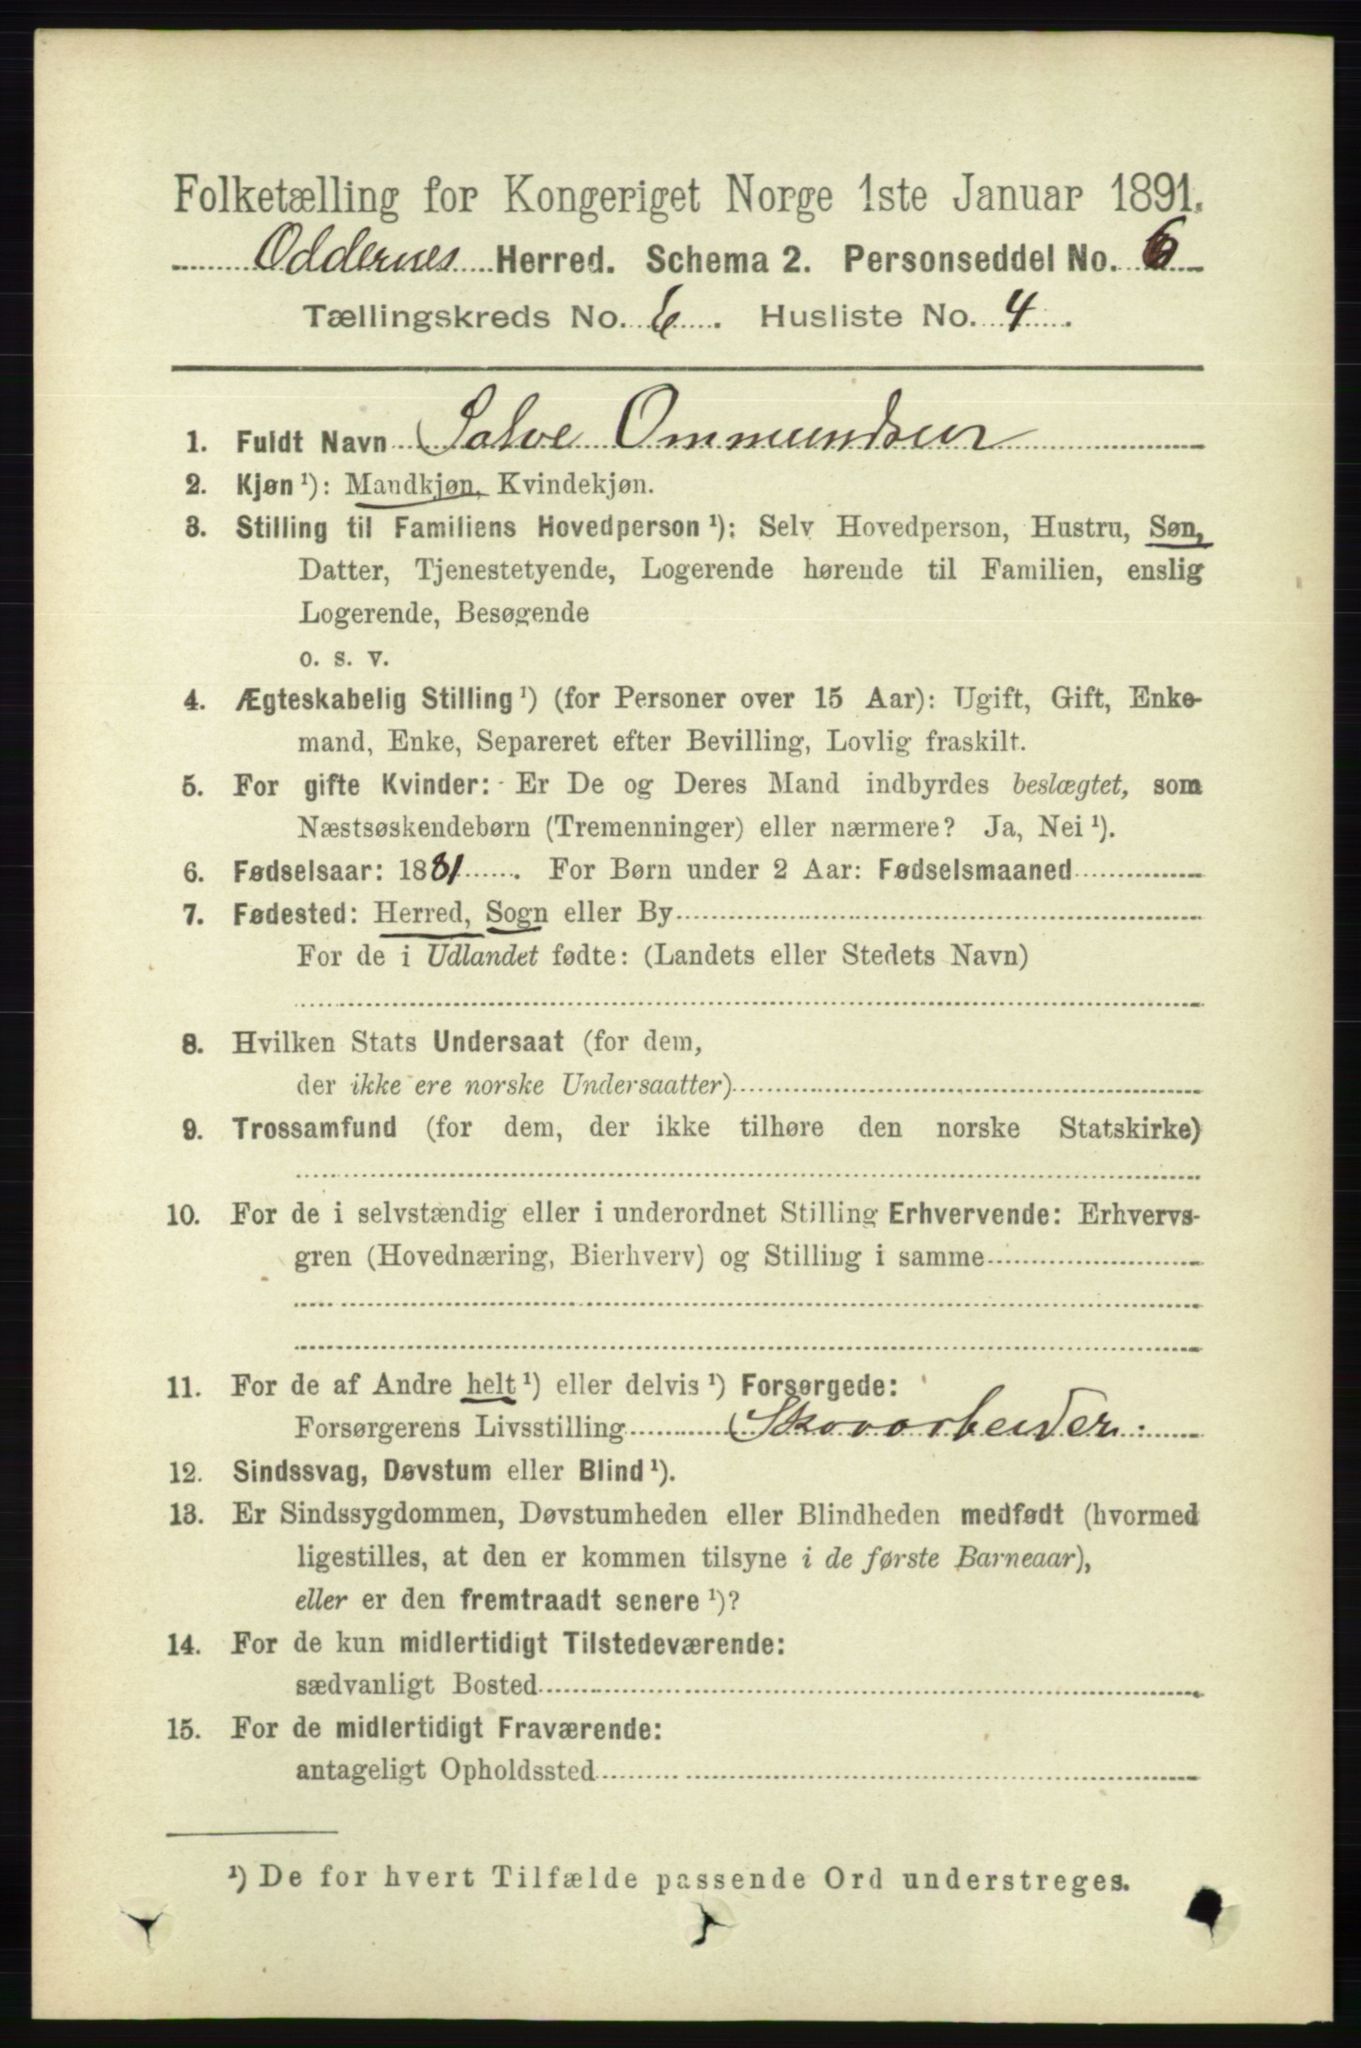 Folketælling for Kongeriget Norge 1ste Januar 1891.
Oddernes Herred. Schema 2. Personseddel No. 6
Tællingskreds No. 6. Husliste No. 4.
1. Fuldt Navn Salve Ommundsen
2. Kjøn ¹): Mandkjøn, Kvindekjøn.
3. Stilling til Familiens Hovedperson ¹): Selv Hovedperson, Hustru, Søn,
Datter, Tjenestetyende, Logerende hørende til Familien, enslig
Logerende, Besøgende
o. s. v.
4. Ægteskabelig Stilling ¹) (for Personer over 15 Aar): Ugift, Gift, Enke-
mand, Enke, Separeret efter Bevilling, Lovlig fraskilt.
5. For gifte Kvinder: Er De og Deres Mand indbyrdes beslægtet, som
Næstsøskendebørn (Tremenninger) eller nærmere? Ja, Nei ¹).
6. Fødselsaar: 1881. For Børn under 2 Aar: Fødselsmaaned
7. Fødested: Herred, Sogn eller By
For de i Udlandet fødte: (Landets eller Stedets Navn)
8. Hvilken Stats Undersaat (for dem,
der ikke ere norske Undersaatter)
9. Trossamfund (for dem, der ikke tilhøre den norske Statskirke)
10. For de i selvstændig eller i underordnet Stilling Erhvervende: Erhvervs-
gren (Hovednæring, Bierhverv) og Stilling i samme
11. For de af Andre helt ¹) eller delvis ¹) Forsørgede:
Forsørgerens Livsstilling Skovarbeider.
12. Sindssvag, Døvstum eller Blind ¹).
13. Er Sindssygdommen, Døvstumheden eller Blindheden medfødt (hvormed
ligestilles, at den er kommen tilsyne i de første Barneaar),
eller er den fremtraadt senere ¹)?
14. For de kun midlertidigt Tilstedeværende:
sædvanligt Bosted
15. For de midlertidigt Fraværende:
antageligt Opholdssted
¹) De for hvert Tilfælde passende Ord understreges.